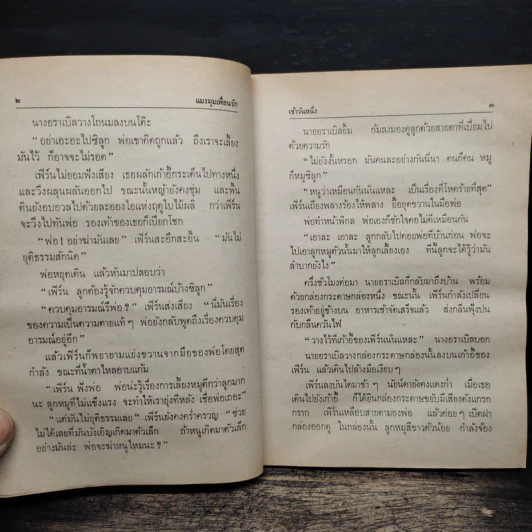 ๒
แมงมุมเพื่อนรัก
นางอราเบิลวางโถนมลงบนโต๊ะ
"อย่าเอะอะไปซิลูก พ่อเขาคิดถูกแล้ว ถึงเราจะเลี้ยง
มันไว้ ก็อาจจะไม่รอด"
เฟิร์นไม่ยอมฟังเสียง เธอผลักเก้าอี้กระเด็นไปทางหนึ่ง
และวิ่งผลุนผลันออกไป ขณะนั้นหญ้ายังคงชุ่ม และพื้น
ดินยังอบอวลไปด้วยละอองไอแห่งฤดูใบไม้ผลิ กว่าเฟิร์น
จะวิ่งไปทันพ่อ รองเท้าของเธอก็เปียกโชก
"พ่อ! อย่าฆ่ามันเลย" เฟิร์นสะอึกสะอื้น "มันไม่
ยุติธรรมสักนิด"
พ่อหยุดเดิน แล้วหันมาปลอบว่า
"เฟิร์น ลูกต้องรู้จักควบคุมอารมณ์บ้างซิลูก"
"ควบคุมอารมณ์รึพ่อ?" เฟิร์นส่งเสียง "นี่มันเรื่อง
ของความเป็นความตายแท้ ๆ พ่อยังกลับพูดถึงเรื่องควบคุม
อารมณ์อยู่อีก"
แล้วเฟิร์นก็พยายามแย่งขวานจากมือของพ่อโดยสุด
กำลัง ขณะที่น้ำตาไหลอาบแก้ม
"เฟิร์น ฟังพ่อ พ่อน่ะรู้เรื่องการเลี้ยงหมูดีกว่าลูกมาก
นะ ลูกหมูที่ไม่แข็งแรง จะทำให้เรายุ่งทีหลัง เชื่อพ่อเถอะ"
"แต่มันไม่ยุติธรรมเลย" เฟิร์นยังคงคร่ำครวญ "ช่วย
ไม่ได้เลยที่มันบังเอิญเกิดมาตัวเล็ก ถ้าหนูเกิดมาตัวเล็ก
อย่างมันล่ะ พ่อจะฆ่าหนูไหมนะ?"
เช้าวันหนึ่ง
๓
นายอราเบิลยิ้ม ก้มลงมองดูลูกด้วยสายตาที่เปี่ยมไป
ด้วยความรัก
"ไม่ยังงั้นหรอก มันคนละอย่างกันนี่นา คนก็คน หมู
ก็หมูซิลูก"
"หนูว่าเหมือนกันนั่นแหละ เป็นเรื่องที่โหดร้ายที่สุด"
เฟิร์นเถียงพลางร้องไห้พลาง ยื้อยุดขวานในมือพ่อ
พ่อทำหน้าพิกล พ่อเองก็ชักใจคอไม่ดีเหมือนกัน
"เอาละ เอาละ ลูกกลับไปคอยพ่อที่บ้านก่อน พ่อจะ
ไปเอาลูกหมูตัวนั้นมาให้ลูกเลี้ยงเอง ทีนี้ลูกจะได้รู้ว่ามัน
ลำบากยังไง"
ครึ่งชั่วโมงต่อมา นายอราเบิลก็กลับมาถึงบ้าน พร้อม
ด้วยกล่องกระดาษกล่องหนึ่ง ขณะนั้น เฟิร์นกำลังเปลี่ยน
รองเท้าอยู่ข้างบน อาหารเช้าจัดเสร็จแล้ว ส่งกลิ่นฟุ้งปน
กับกลิ่นควันไฟ
"วางไว้ที่เก้าอี้ของเฟิร์นนั่นแหละ" นางอราเบิลบอก
นายอราเบิลวางกล่องกระดาษกล่องนั้นลงบนเก้าอี้ของ
เฟิร์น แล้วเดินไปล้างมือเงียบ ๆ
เฟิร์นลงบันไดมาช้า ๆ นัยน์ตายังคงแดงก่ำ เมื่อเธอ
เดินไปยังเก้าอี้ ก็ได้ยินกล่องกระดาษขยับมีเสียงดังแกรก
กราก เฟิร์นเหลือบสายตามองพ่อ แล้วค่อยๆ เปิดฝา
กล่องออกดู ในกล่องนั้น ลูกหมูสีขาวตัวน้อย กำลังจ้อง